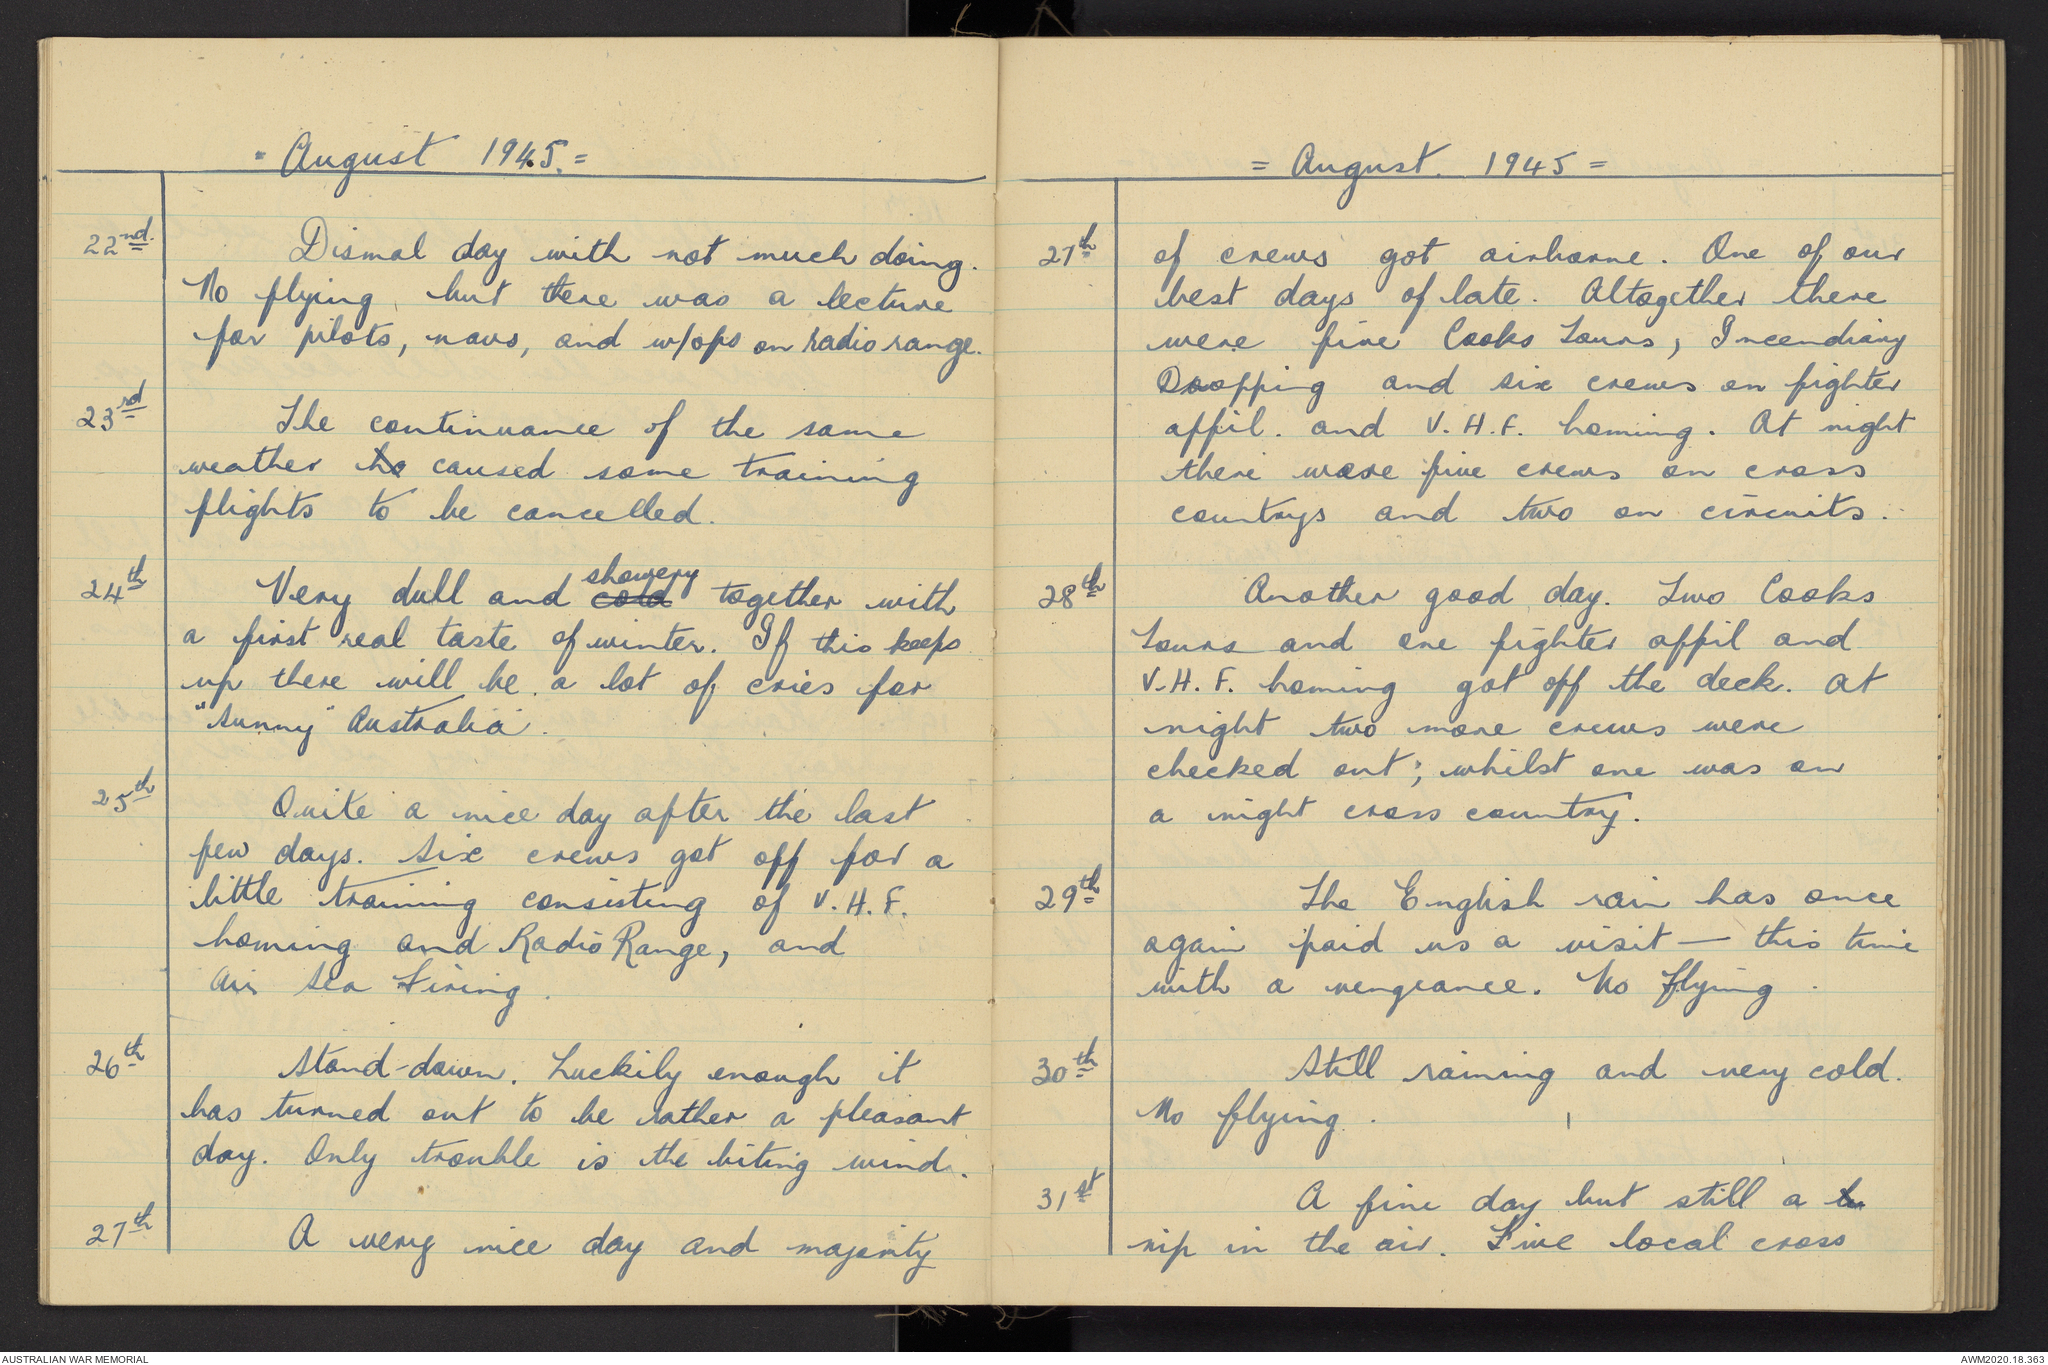 = August 1945. =
22nd. Dismal day with not much doing.
No flying, but there was a lecture
for pilots, navs, and w/ops on radio range.
23rd The continuance of the same
weather ha caused some training
flights to be cancelled.
showery
24th Very dull and cold together with
a first real taste of winter. If this keeps
up there will be a lot of cries for
"Sunny" Australia.
25th Quite a nice day after the last
few days. Six crews got off for a
little training consisting of V.H.F.
homing and Radio Range, and
Air Sea Firing.
26th Stand-down. Luckily enough it
has turned out to be rather a pleasant
day. Only trouble is the biting wind.
27th A very nice day and majority
= August. 1945 =
27th of crews got airborne. One of our
best days of late. Altogether there
were five Cooks Tours, Incendiary
Droopping and six crews on fighter
affil. and V.H.F. homing. At night
there were five crews on cross
countrys and two on circuits.
28th Another good day. Two Cooks
Tours and one fighter affil and
V.H.F. homing got off the deck. At
night two more crews were
checked out; whilst one was on
a night cross country.
29th The English rain has once
again paid us a visit — this time
with a vengeance. No flying.
30th Still raining and very cold.
No flying.
31st A fine day but still a
nip in the air. Five local cross
AUSTRALIAN WAR MEMORIAL
AWM2020.18.363